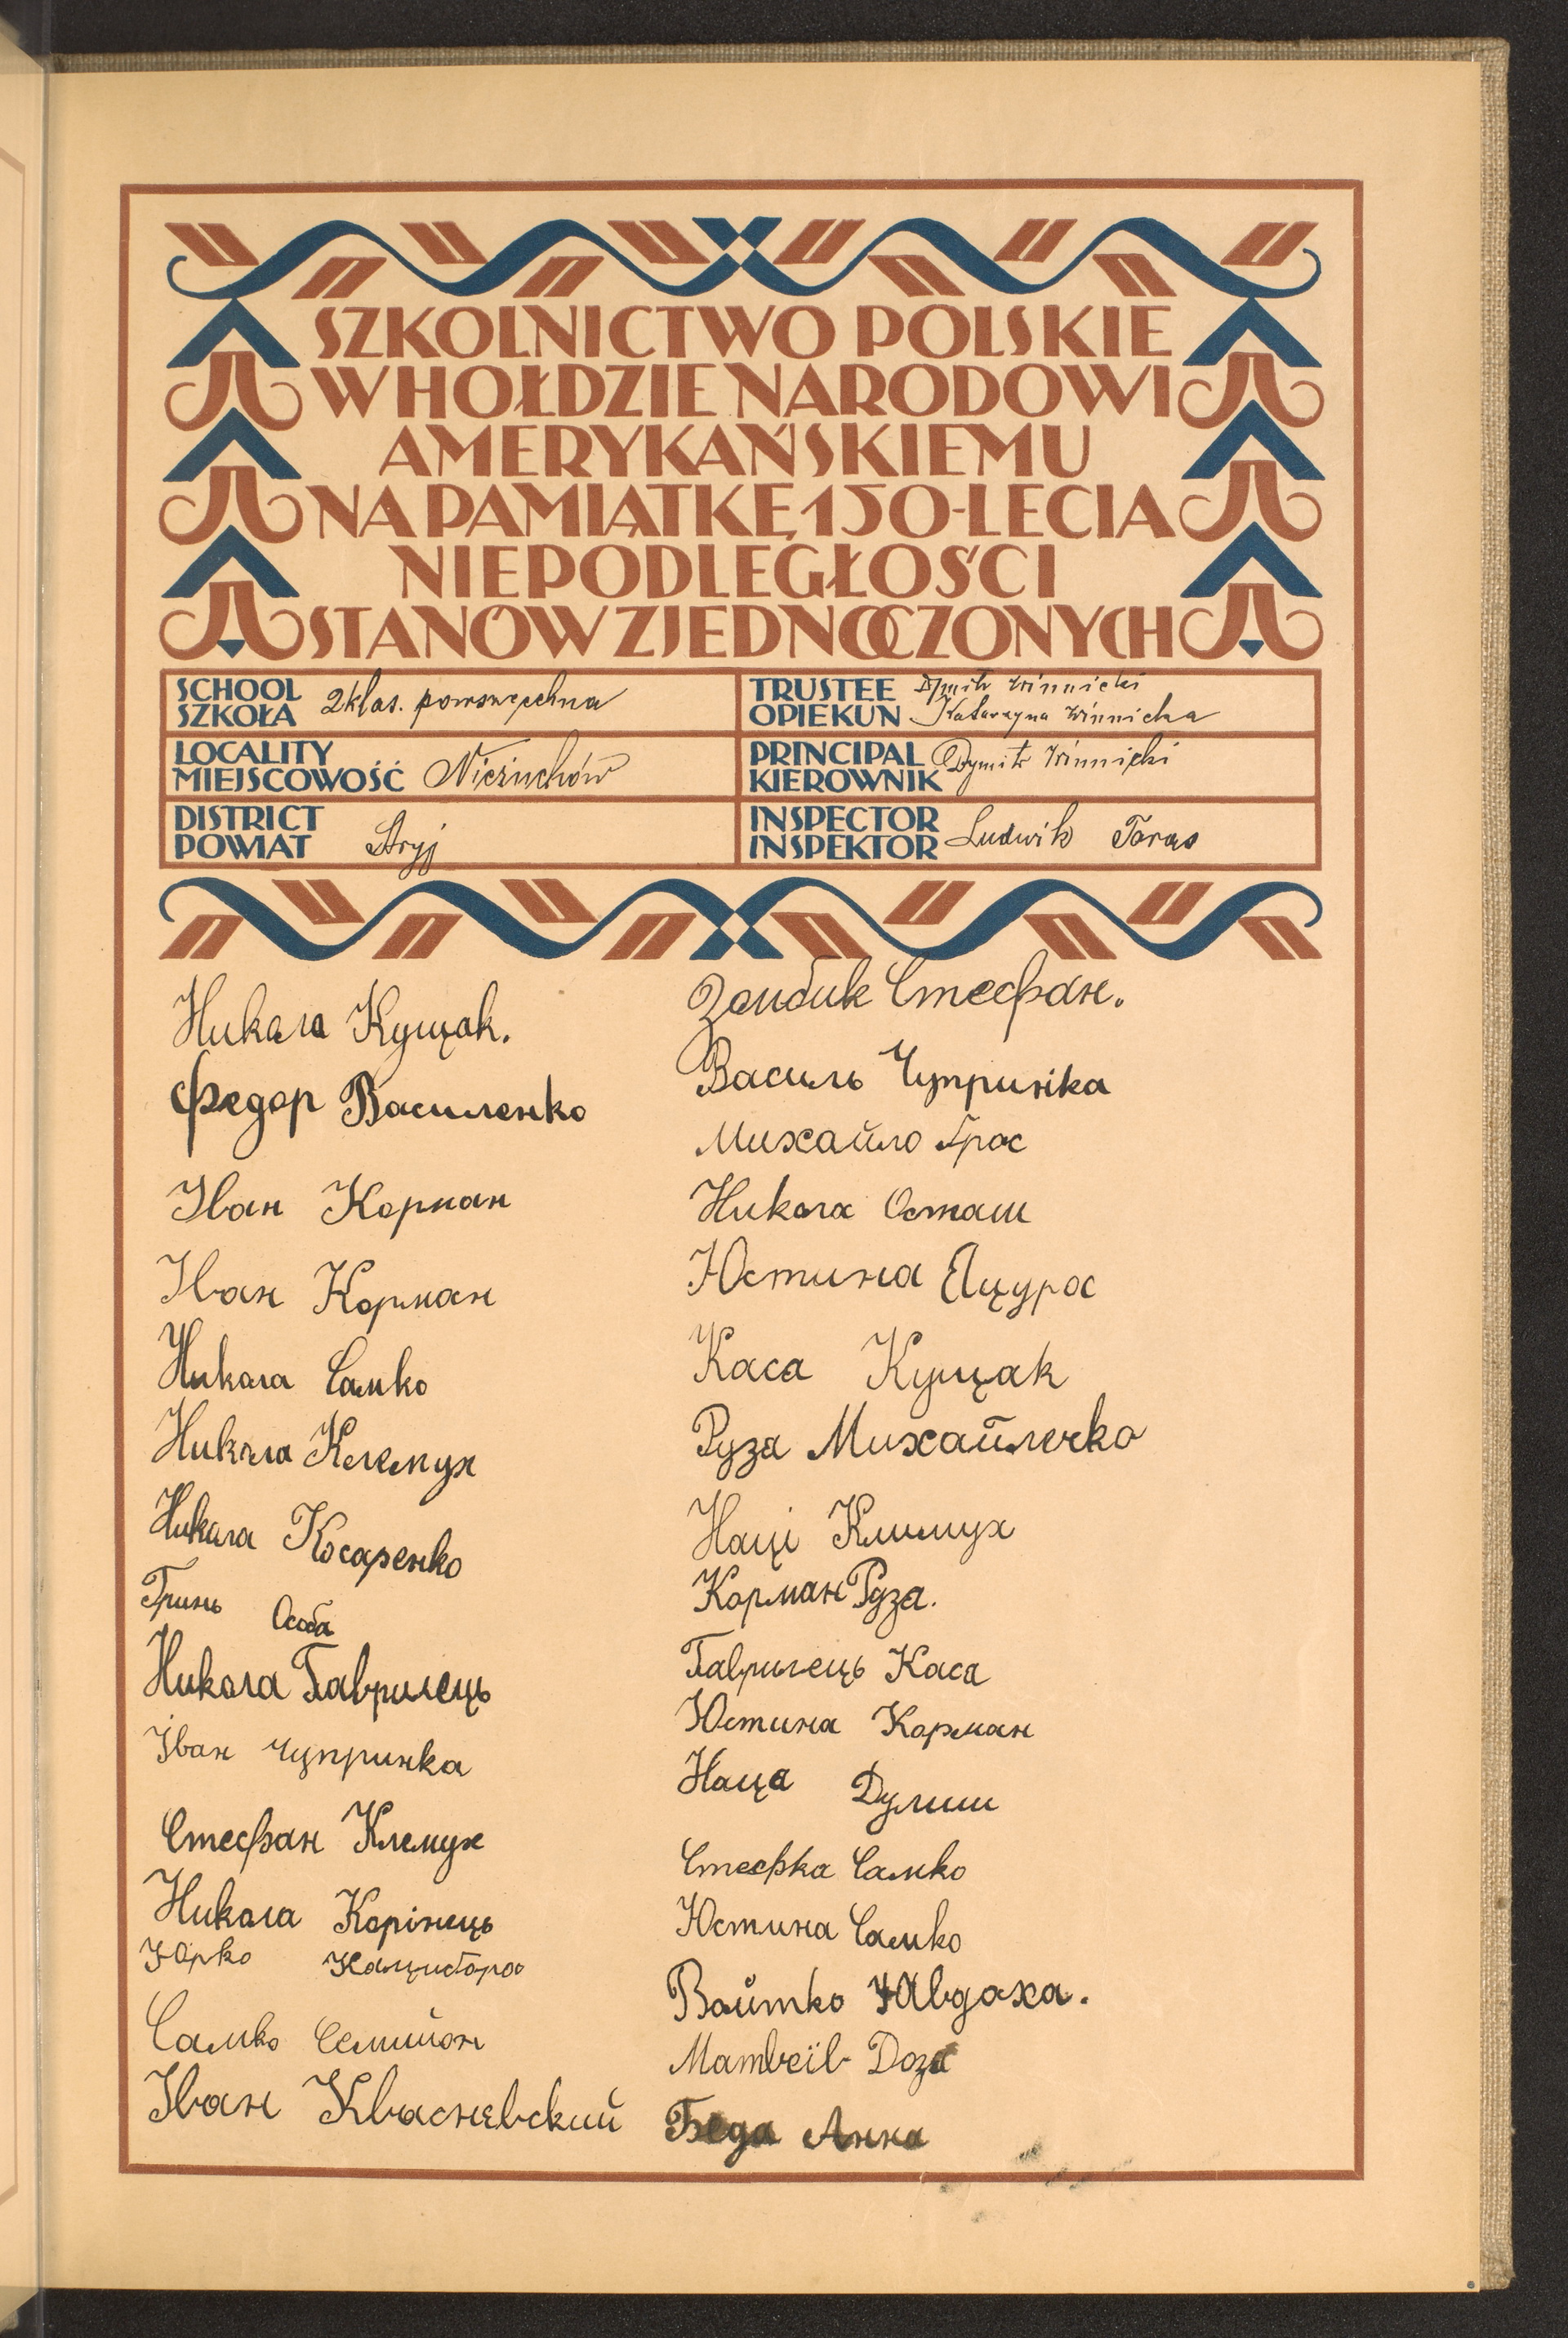 SZKOLNICTWO POLSKIE
W HOŁDZIE NARODOWI
AMERYKAŃSKIEMU
NA PAMIĄTKĘ 150-LECIA
NIEPODLEGŁOŚCI
STANÓW ZJEDNOCZONYCH
SCHOOL
SZKOŁA 2klas. powszechna
TRUSTEE Dymitr Winnicki
OPIEKUN Katarzyna Winnicka
LOCALITY
MIEJSCOWOŚĆ Nieżuchów
PRINCIPAL
KIEROWNIK Dymitr Winnicki
DISTRICT
POWIAT Stryj
INSPECTOR
INSPEKTOR Ludwik Taras
Никола Кущак.
Федор Василенко
Іван Корман
Іван Корман
Никола Самко
Никола Клемух
Никола Косаренко
Гринь Особа
Никола Гаврилець
Іван Чупринка
Стефан Клемух
Никола Корінець
Юрко
Самко Семийон
Іван Квасневский
Стефан.
Василь Чупринка
Михайло Грос
Никола Осташ
Юстина Яцура
Каса Кущак
Руза Михайлечко
Наці Климух
Корман Рузa.
Гаврилець Каса
Юстина Корман
Наца Дулиш
Стефка Самко
Юстина Самко
Войтко Явдоха.
Матвеїв Доза
Беда Анна